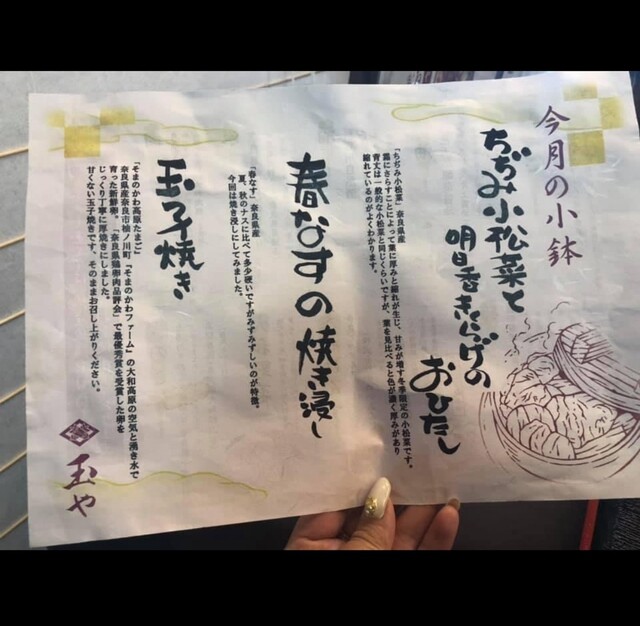 今月の小鉢
ちぢみ小松菜と
明日香きくらげの
おひたし
「ちぢみ小松菜」奈良県産
霜にさらすことによって葉に厚みと縮れが生じ、甘みが増す冬季限定の小松菜です。
青丈は一般的な小松菜と同じくらいですが、葉を見比べると色が濃く厚みがあり
縮れているのがよくわかります。
春なすの焼き浸し
「春なす」奈良県産
夏、秋のナスに比べて多少硬いですがみずみずしいのが特徴。
今回は焼き浸しにしてみました。
玉子焼き
「そまのかわ高原たまご」
奈良県奈良市杣ノ川町「そまのかわファーム」の大和高原の空気と湧き水で
育った新鮮卵。「奈良県鶏卵肉品評会」で最優秀賞を受賞した卵を
じっくり丁寧に厚焼きにしました。
甘くない玉子焼きです、そのままお召し上がりください。
玉や